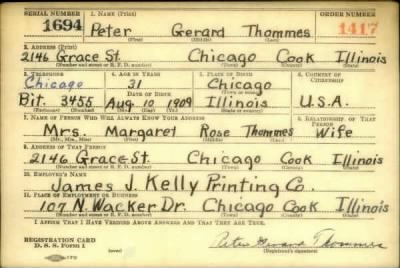 SERIAL NUMBER 1. NAME (Print) ORDER NUMBER
1694 Peter Gerard Thommes 1417
(First) (Middle) (Last)
2. ADDRESS (Print)
2146 Grace St. Chicago Cook Illinois
(Number and street or R. F. D. number) (Town) (County) (State)
3. TELEPHONE 4. AGE IN YEARS 5. PLACE OF BIRTH 6. COUNTRY OF CITIZENSHIP
Chicago 31 Chicago
DATE OF BIRTH (Town or county)
Bit. 3455 Aug 10 1909 Illinois U.S.A.
(Mo.) (Day) (Yr.) (State or country)
7. NAME OF PERSON WHO WILL ALWAYS KNOW YOUR ADDRESS 8. RELATIONSHIP OF THAT PERSON
Mrs. Margaret Rose Thommes Wife
(Mr., Mrs., Miss) (First) (Middle) (Last)
9. ADDRESS OF THAT PERSON
2146 Grace St. Chicago Cook Illinois
(Number and street or R. F. D. number) (Town) (County) (State)
10. EMPLOYER'S NAME
James J. Kelly Printing Co.
11. PLACE OF EMPLOYMENT OR BUSINESS
107 N. Wacker Dr. Chicago Cook Illinois
(Number and street or R. F. D. number) (Town) (County) (State)
I AFFIRM THAT I HAVE VERIFIED ABOVE ANSWERS AND THAT THEY ARE TRUE.
REGISTRATION CARD
D. S. S. Form 1 Peter Gerard Thommes
(Registrant's signature)